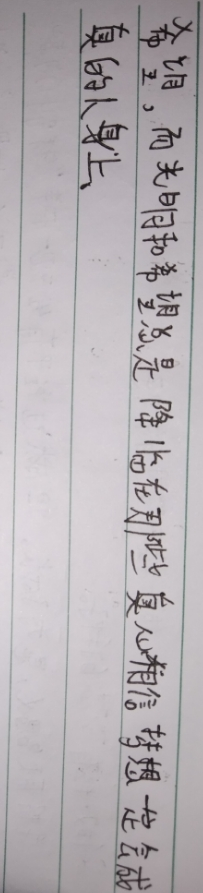 希望，而光明和希望总是降临在那些真心相信梦想一定会成
真的人身上